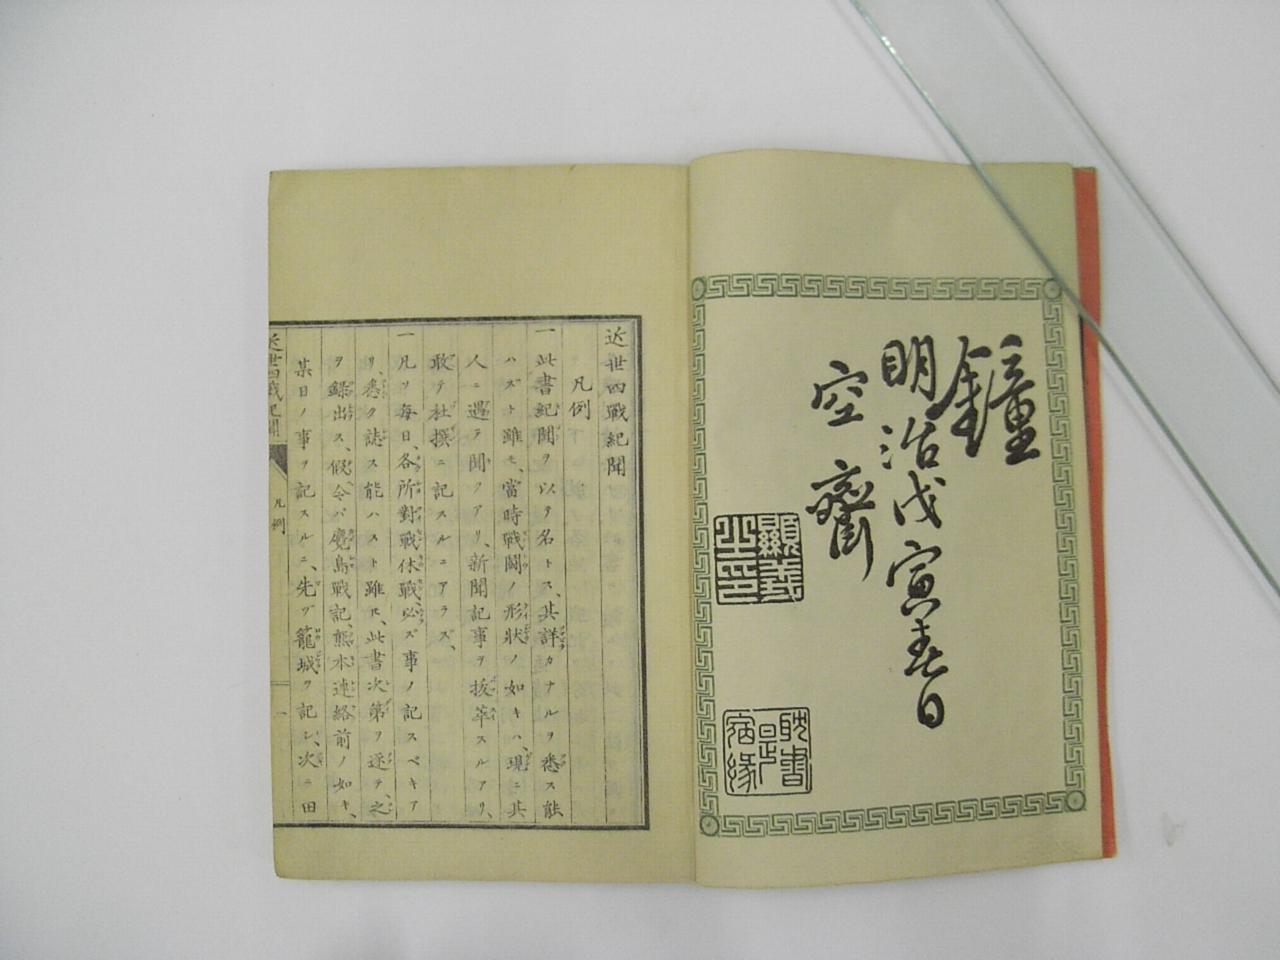 鐘
明治戊寅春日
空齋
顯義之印
耽書是宿緣
近世四戰紀聞
凡例
一此書紀聞ヲ以テ名トス、其詳カナルヲ悉ス能
ハズト雖モ、當時戰鬪ノ形狀ノ如キハ、現ニ其
人ニ遇テ聞クアリ、新聞記事ヲ拔萃スルアリ、
敢テ杜撰ニ記スルニアラズ、
一凡ソ每日、各所對戰休戰必ズ事ノ記スベキア
リ、悉ク誌ス能ハスト雖モ、此書次第ヲ逐テ、之
ヲ錄出ス、假令バ麑島戰記、熊本連絡前ノ如キ、
某日ノ事ヲ記スルニ、先ヅ籠城ヲ記シ、次ニ田
近世四戰紀聞 凡例 一